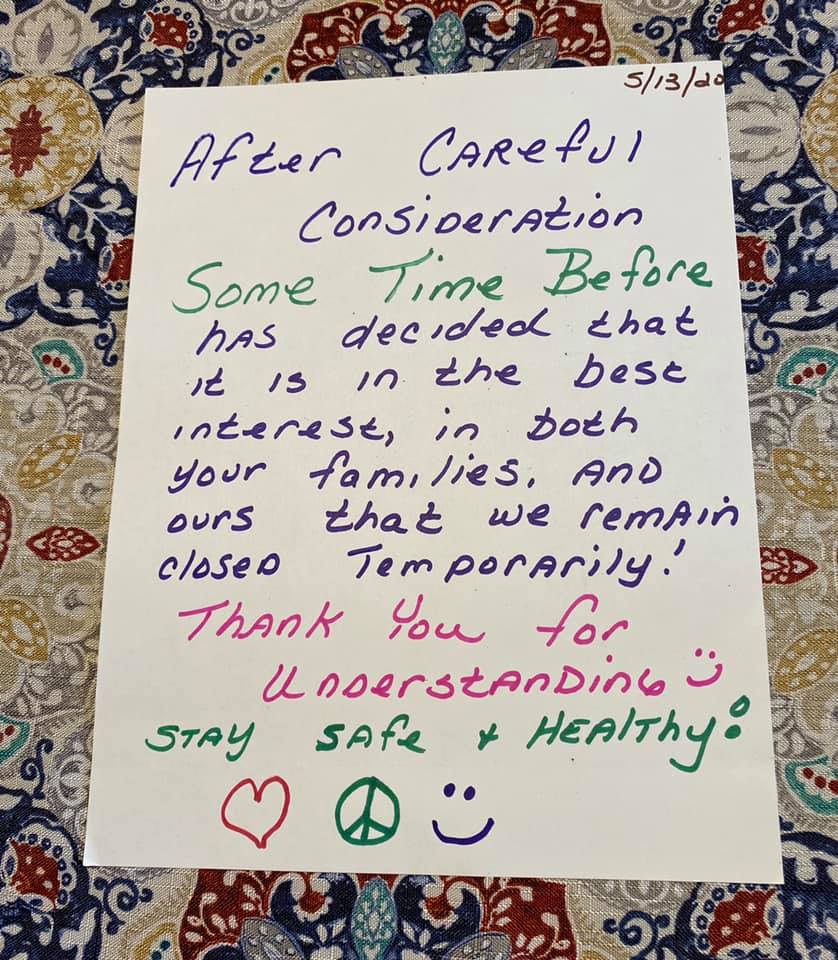 5/13/20
After CAREfUl
ConsiDerAtion
Some Time Before
hAs decided that
it is in the best
interest, in both
your families, AND
ours that we remAin
closeD TemporArily!
ThAnk You for
UnDerstAnDinG :)
STAY SAfe + HEAlthy!